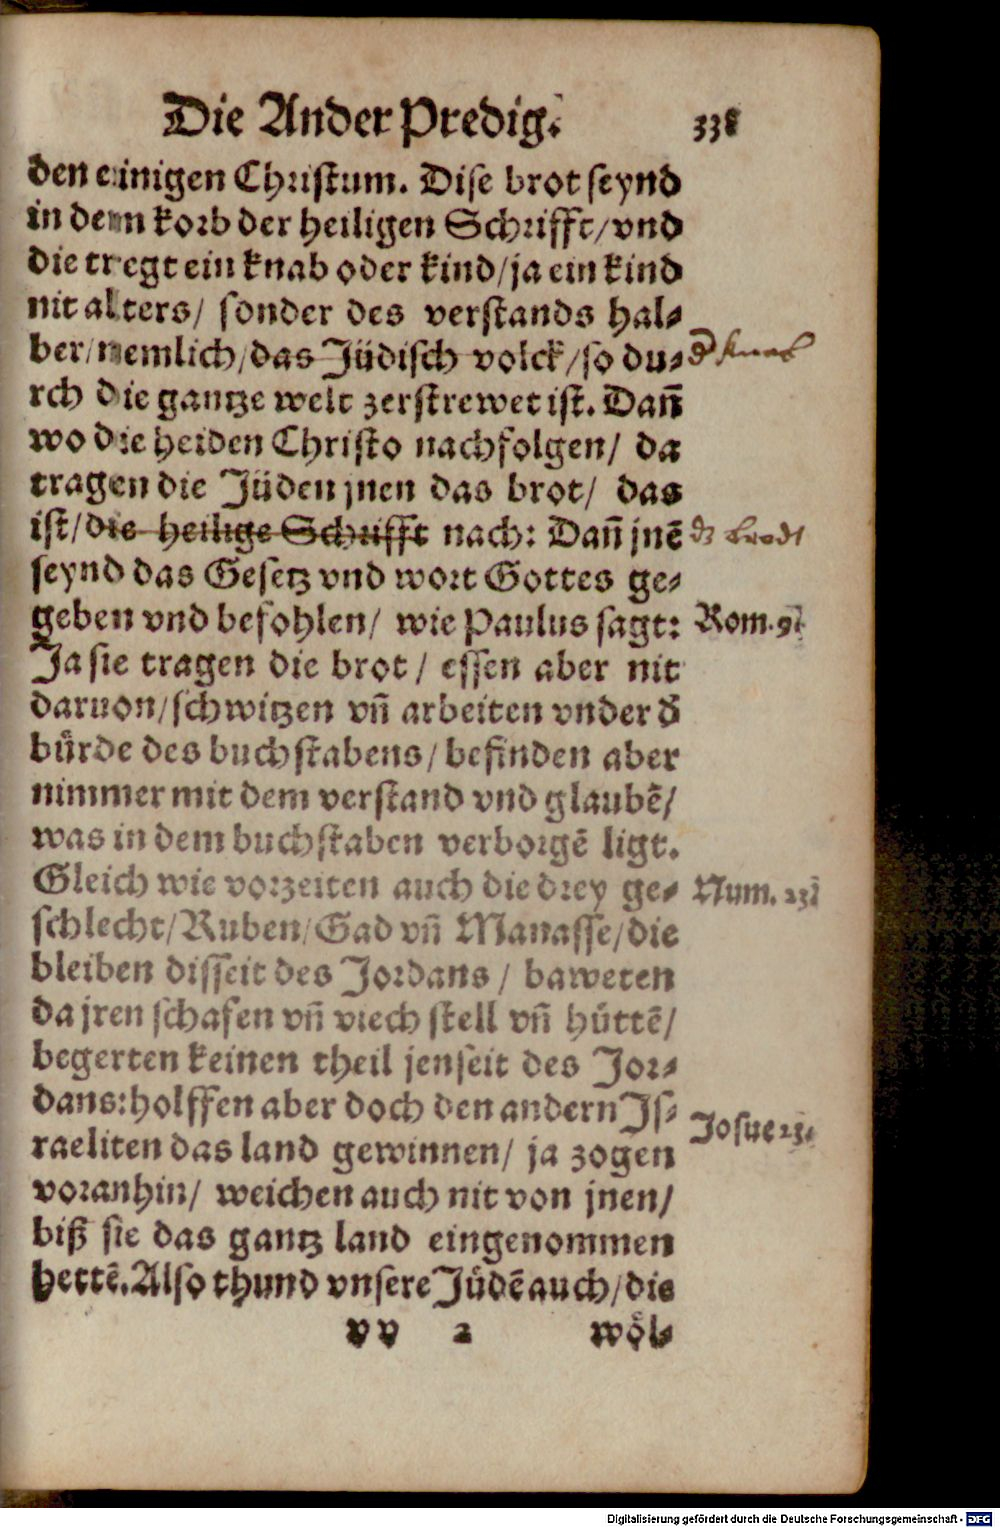 Die Ander Predig. 338
den einigen Christum. Dise brot seynd
in dem korb der heiligen Schrifft/ vnd
die tregt ein knab oder kind/ ja ein kind
nit alters/ sonder des verstands hal-
ber/ nemlich/ das Jüdisch volck/ so du-
rch die gantze welt zerstrewet ist. Dañ
wo die heiden Christo nachfolgen/ da
tragen die Jüden jnen das brot/ das
ist/ die heilige Schrifft nach: Dañ jnē
seynd das Gesetz vnd wort Gottes ge-
geben vnd befohlen/ wie Paulus sagt:
Ja sie tragen die brot/ essen aber nit
daruon/ schwitzen vñ arbeiten vnder d̄
bůrde des buchstabens/ befinden aber
nimmer mit dem verstand vnd glaubē/
was in dem buchstaben verborgē ligt.
Gleich wie vorzeiten auch die drey ge-
schlecht/ Ruben/ Gad vñ Manasse/ die
bleiben disseit des Jordans/ baweten
da jren schafen vñ viech stell vñ hüttē/
begerten keinen theil jenseit des Jor-
dans: holffen aber doch den andern Js-
raeliten das land gewinnen/ ja zogen
voranhin/ weichen auch nit von jnen/
biß sie das gantz land eingenommen
hettē. Also thund vnsere Jüdē auch/ die
vv 2 wöl-
d̄ knab
dz brodt
Rom. 9.
Num. 23
Josue 23.
Digitalisierung gefördert durch die Deutsche Forschungsgemeinschaft - DFG